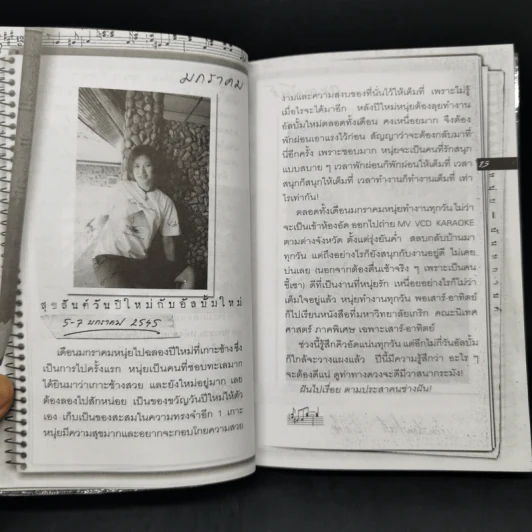 มกราคม
สุขสันต์วันปีใหม่กับอัลบั้มใหม่
5-7 มกราคม 2545
เดือนมกราคมหนุ่ยไปฉลองปีใหม่ที่เกาะช้าง ซึ่ง
เป็นการไปครั้งแรก หนุ่ยเป็นคนที่ชอบทะเลมาก
ได้ยินมาว่าเกาะช้างสวย และยังใหม่อยู่มาก เลย
ต้องลองไปสักหน่อย เป็นของขวัญวันปีใหม่ให้ตัว
เอง เก็บเป็นของสะสมในความทรงจำอีก 1 เกาะ
หนุ่ยมีความสุขมากและอยากจะกอบโกยความสวย
งามและความสงบของที่นั่นไว้ให้เต็มที่ เพราะไม่รู้
เมื่อไรจะได้มาอีก หลังปีใหม่หนุ่ยต้องลุยทำงาน
อัลบั้มใหม่ตลอดทั้งเดือน คงเหนื่อยมาก จึงต้อง
พักผ่อนเอาแรงไว้ก่อน สัญญาว่าจะต้องกลับมาที่
นี่อีกครั้ง เพราะชอบมาก หนุ่ยจะเป็นคนที่รักสนุก
แบบสบาย ๆ เวลาพักผ่อนก็พักผ่อนให้เต็มที่ เวลา
สนุกก็สนุกให้เต็มที่ เวลาทำงานก็ทำงานเต็มที่ เท่า
ไรเท่ากัน!
ตลอดทั้งเดือนมกราคมหนุ่ยทำงานทุกวัน ไม่ว่า
จะเป็นเข้าห้องอัด ออกไปถ่าย MV VCD KARAOKE
ตามต่างจังหวัด ตั้งแต่รุ่งยันค่ำ สลบกลับบ้านมา
ทุกวัน แต่ถึงอย่างไรก็ยังสนุกกับงานอยู่ดี ไม่เคย
บ่นเลย (นอกจากต้องตื่นเช้าจริง ๆ เพราะเป็นคน
ขี้เซา) ดีที่เป็นงานที่หนุ่ยรัก เหนื่อยอย่างไรก็ไม่
เต็มใจอยู่แล้ว หนุ่ยทำงานทุกวัน พอเสาร์-อาทิตย์
ก็ไปเรียนหนังสือที่มหาวิทยาลัยเกริก คณะนิเทศ
ศาสตร์ ภาคพิเศษ เฉพาะเสาร์-อาทิตย์
ช่วงนี้รู้สึกคิวอัดแน่นทุกวัน แต่อีกไม่กี่วันอัลบั้ม
ก็ใกล้จะวางแผงแล้ว ปีนี้มีความรู้สึกว่า อะไร ๆ
จะต้องดีแน่ ดูท่าทางดวงจะดีมีวาสนากระมัง!
ฝันไปเรื่อย ตามประสาคนช่างฝัน!
25